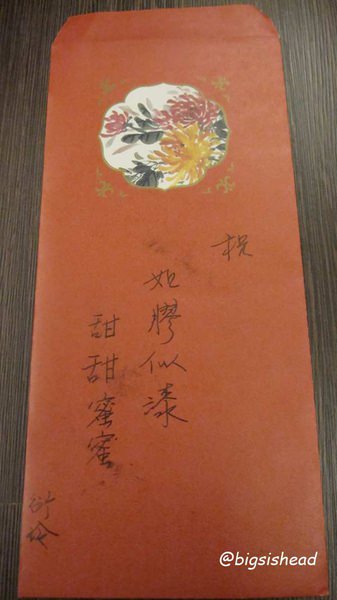 祝
如膠似漆
甜甜蜜蜜
@bigsishead